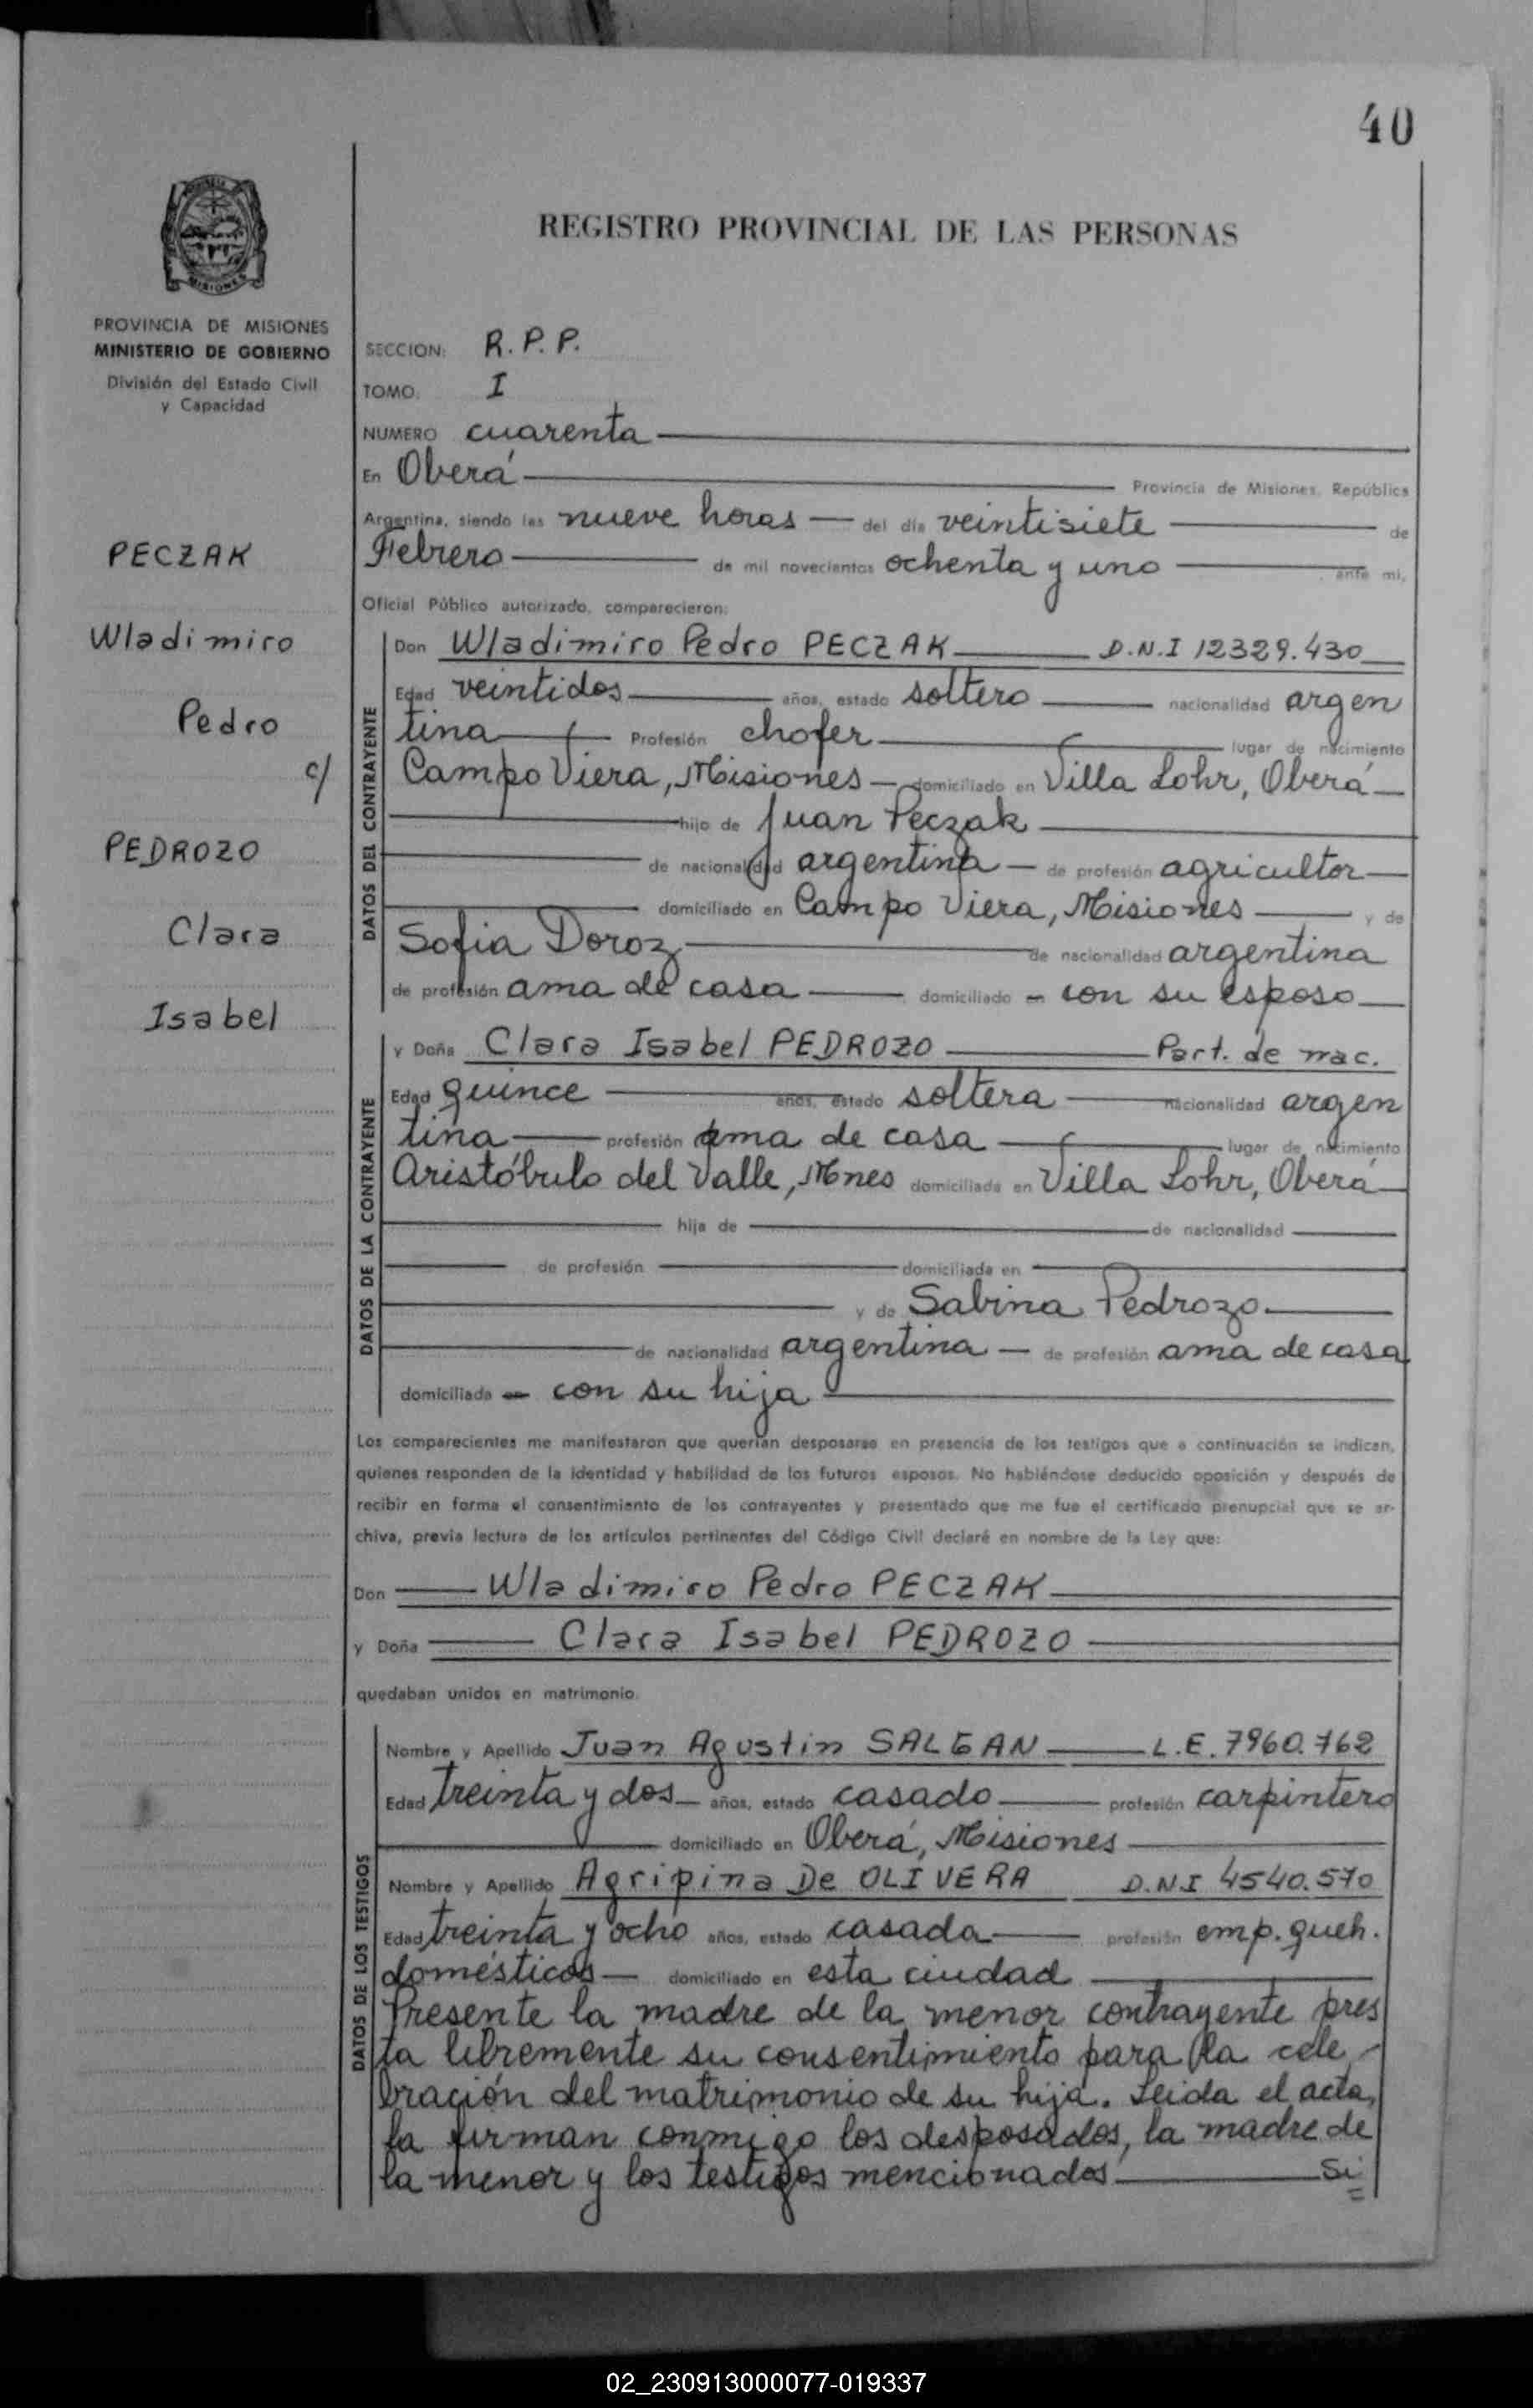 40
REGISTRO PROVINCIAL DE LAS PERSONAS
MISIONES
PROVINCIA DE MISIONES
MINISTERIO DE GOBIERNO
División del Estado Civil
y Capacidad
PECZAK
Wladimiro
Pedro
c/
PEDROZO
Clara
Isabel
SECCION: R. P. P.
TOMO: I
NUMERO cuarenta
En Oberá Provincia de Misiones, República
Argentina, siendo las nueve horas del día veintisiete de
Febrero de mil novecientos ochenta y uno ante mi,
Oficial Público autorizado, comparecieron:
DATOS DEL CONTRAYENTE
Don Wladimiro Pedro PECZAK D.N.I 12329.430
Edad veintidos años, estado soltero nacionalidad argen
tina Profesión chofer lugar de nacimiento
Campo Viera, Misiones domiciliado en Villa Lohr, Oberá
hijo de Juan Peczak
de nacionalidad argentina de profesión agricultor
domiciliado en Campo Viera, Misiones y de
Sofia Doroz de nacionalidad argentina
de profesión ama de casa domiciliado con su esposo
DATOS DE LA CONTRAYENTE
y Doña Clara Isabel PEDROZO Part. de nac.
Edad quince años, estado soltera nacionalidad argen
tina profesión ama de casa lugar de nacimiento
Aristóbulo del Valle, Mnes domiciliada en Villa Lohr, Oberá
hija de de nacionalidad
de profesión domiciliada en
y de Sabina Pedrozo
de nacionalidad argentina de profesión ama de casa
domiciliada con su hija
Los comparecientes me manifestaron que querían desposarse en presencia de los testigos que a continuación se indican,
quienes responden de la identidad y habilidad de los futuros esposos. No habiéndose deducido oposición y después de
recibir en forma el consentimiento de los contrayentes y presentado que me fue el certificado prenupcial que se ar-
chiva, previa lectura de los artículos pertinentes del Código Civil declaré en nombre de la Ley que:
Don Wladimiro Pedro PECZAK
y Doña Clara Isabel PEDROZO
quedaban unidos en matrimonio.
DATOS DE LOS TESTIGOS
Nombre y Apellido Juan Agustin L.E. 7960.762
Edad treinta y dos años, estado casado profesión carpintero
domiciliado en Oberá, Misiones
Nombre y Apellido Agripina De OLIVERA D.N.I 4540.570
Edad treinta y ocho años, estado casada profesión emp. queh.
domésticos domiciliado en esta ciudad
Presente la madre de la menor contrayente pres
ta libremente su consentimiento para la cele-
bración del matrimonio de su hija. Leida el acta,
la firman conmigo los desposados, la madre de
la menor y los testigos mencionados Si
02_230913000077-019337